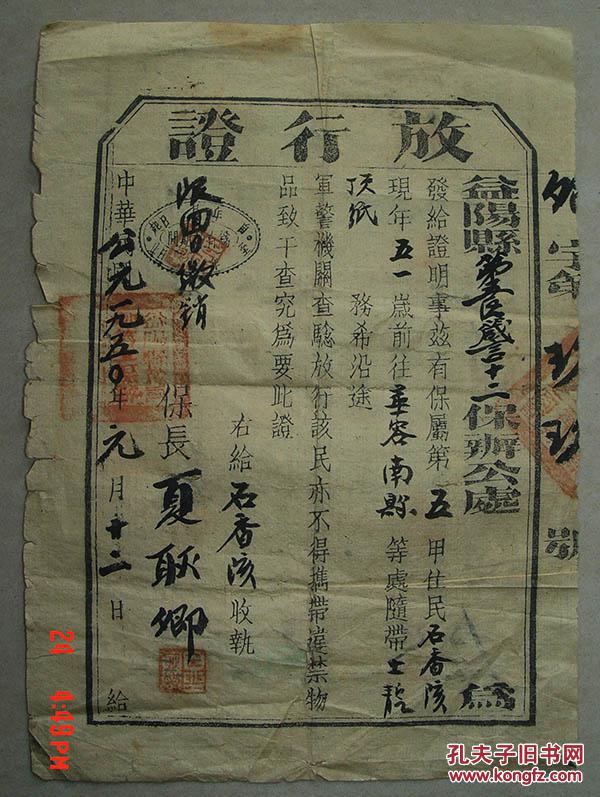 放行證
益陽縣第五區 十二保辦公處 為
發給證明事茲有保屬第五甲住民石香
現年五一歲前往華容南縣等處隨帶土
頂紙 務希沿途
軍警機關查驗放行該民亦不得攜帶違禁物
品致干查究為要此證
右給石香 收執
限 日繳銷
保長夏耿卿
中華公元一九五〇年元月十二日給
字第 玖玖號
24 4:49PM
孔夫子旧书网
www.kongfz.com